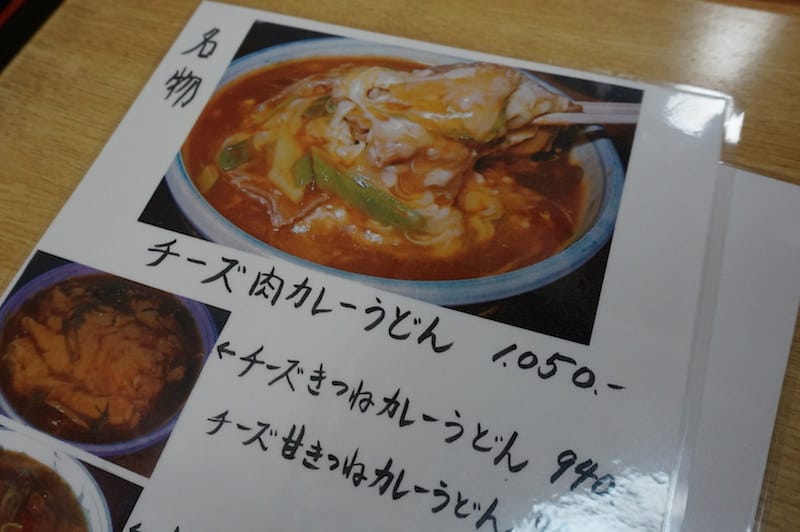 名物
チーズ肉カレーうどん 1.050.-
←チーズきつねカレーうどん 940
チーズ甘きつねカレーうどん